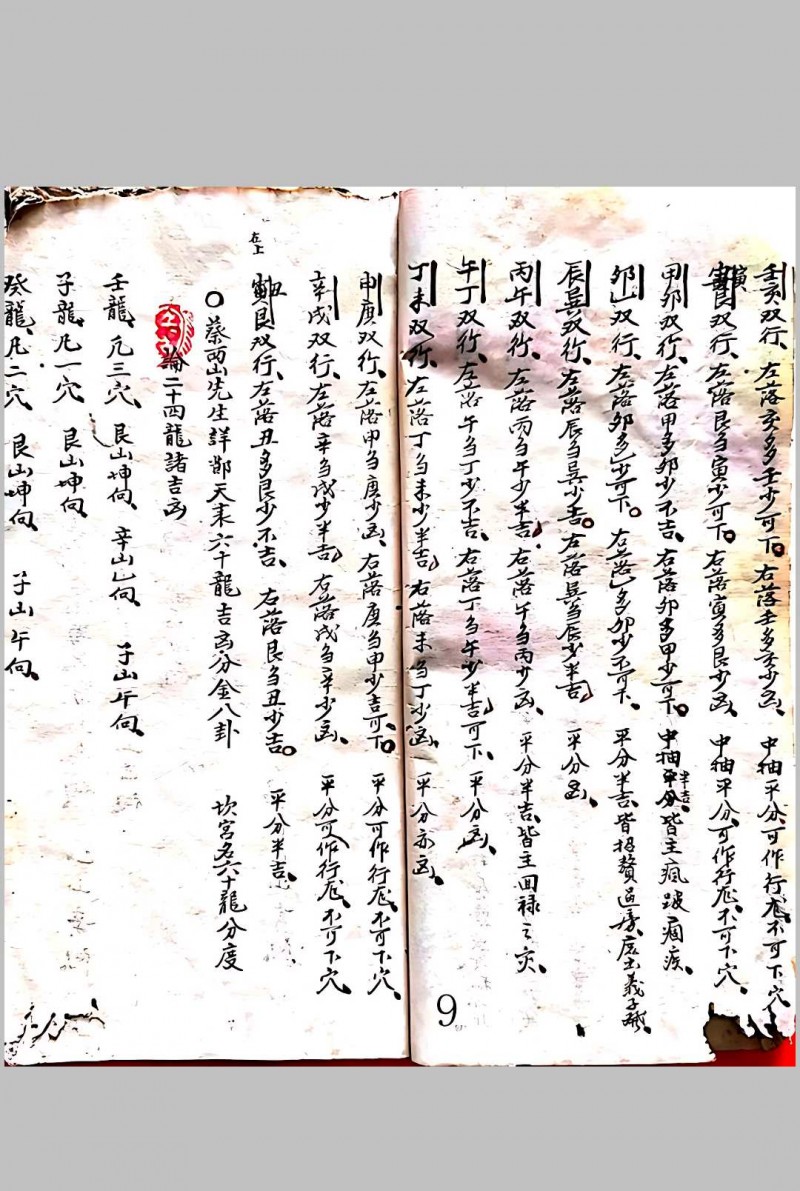 壬亥双行、左落亥多壬少可下。右落壬多亥少凶、中抽平分、可作行龙、不可下穴、
寅艮双行、左落艮多寅少可下。右落寅多艮少凶、中抽平分、可作行龙、不可下穴、
甲卯双行、左落甲多卯少不吉、右落卯多甲少可下。中抽平分半吉、皆主疯跛痼疾、
卯乙双行、左落卯多乙少可下。右落乙多卯少不可下、平分半吉、皆招赘过房、庶出義子
辰巽双行、左落辰多巽少吉。右落巽多辰少半吉、平分凶、
丙午双行、左落丙多午少半吉、右落午多丙少凶、平分半吉、皆主回禄之灾、
午丁双行、左落午多丁少不吉、右落丁多午少半吉可下、平分凶、
丁未双行、左落丁多未少半吉、右落未多丁少凶、平分亦凶、
9
申庚双行、左落甲多庚少凶、右落庚多申少吉可下。平分可作行龙、不可下穴、
辛戌双行、左落辛多戌少半吉、右落戌多辛少凶、平分可作行龙、不可下穴、
丑艮双行、左落丑多艮少不吉、右落艮多丑少吉。平分半吉、
〇蔡西山先生詳鄒天來六十龍吉凶分金八卦 坎宫名六十龍分度
論二十四龍諸吉凶
壬龍、凡三穴、艮山坤向、辛山乙向、子山午向、
子龍、凡一穴、艮山坤向、
癸龍、凡二穴、艮山坤向、子山午向、